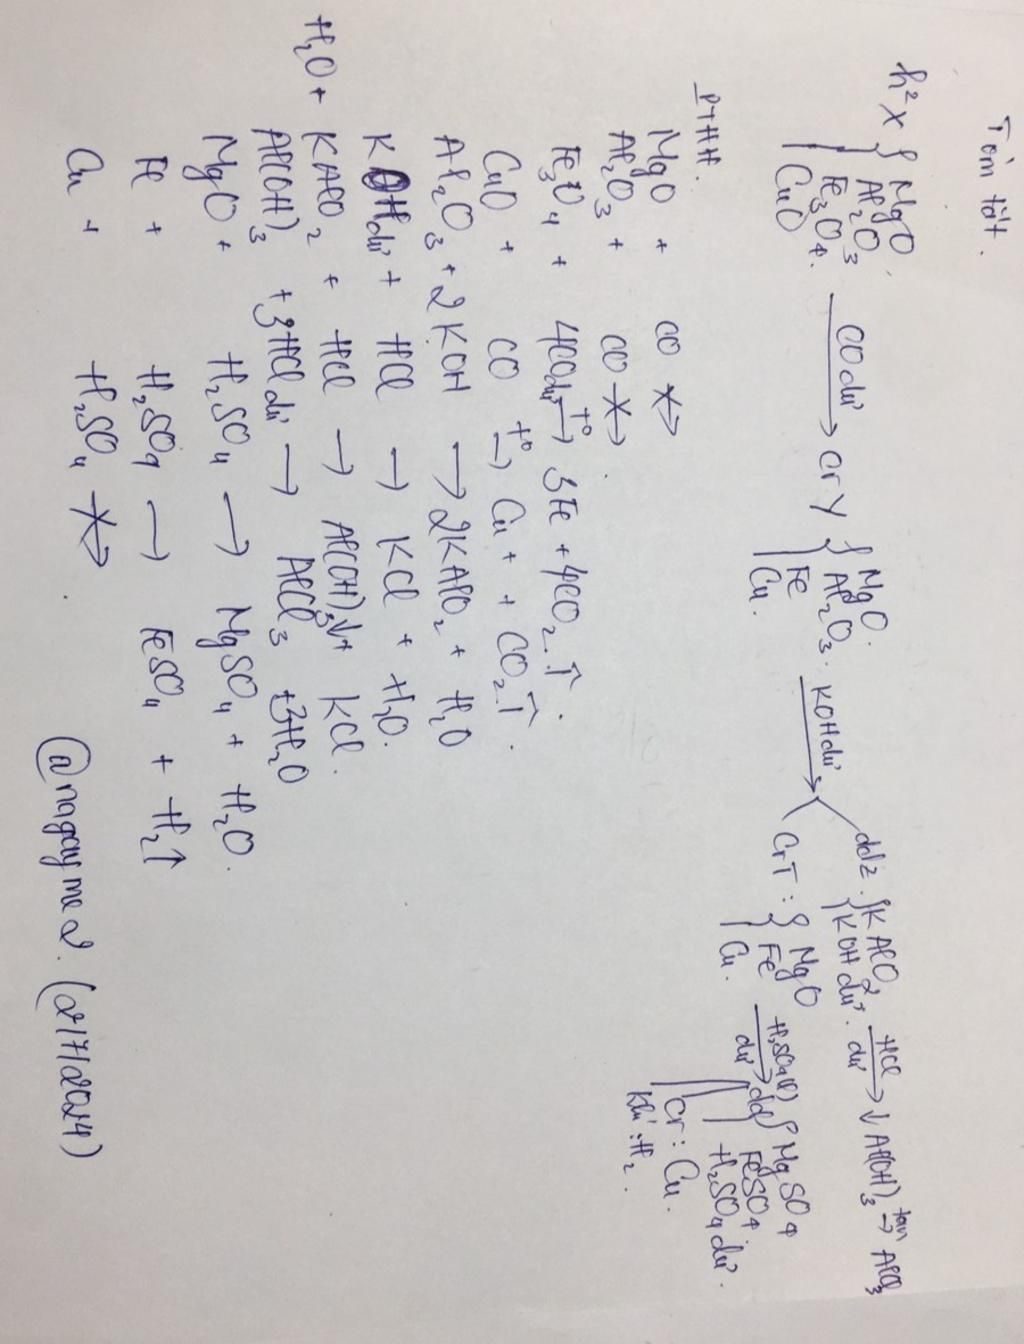 Tóm tắt.
h² X { MgO Al₂O₃ Fe₃O₄ CuO —CO dư→ Cr Y { MgO. Al₂O₃. Fe Cu. —KOH dư→
dd Z { KAlO₂ KOH dư. —HCl dư→ ↓ Al(OH)₃ —tan→ AlCl₃
Cr T : { MgO Fe Cu. —H₂SO₄(l) dư→ dd { MgSO₄ FeSO₄. H₂SO₄ dư.
Cr : Cu.
khí : H₂.
PTHH.
MgO + CO -×->
Al₂O₃ + CO -×->
Fe₃O₄ + 4CO dư —t°→ 3Fe + 4CO₂↑.
CuO + CO —t°→ Cu + + CO₂↑.
Al₂O₃ + 2KOH → 2KAlO₂ + H₂O
KOH dư + HCl → KCl + H₂O.
H₂O + KAlO₂ + HCl → Al(OH)₃↓ + KCl.
Al(OH)₃ + 3HCl dư → AlCl₃ + 3H₂O
MgO + H₂SO₄ → MgSO₄ + H₂O.
Fe + H₂SO₄ → FeSO₄ + H₂↑
Cu + H₂SO₄ -×->
@nagayme2. (2/7/2024)